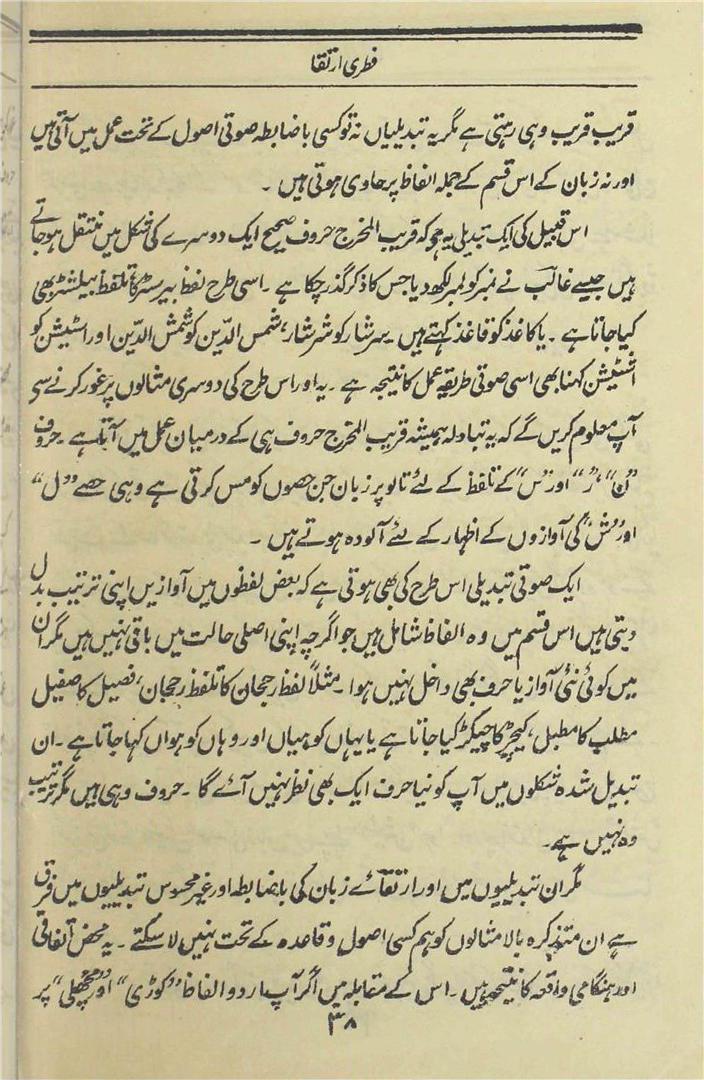 فطری ارتقا
قریب قریب وہی رہتی ہے مگر یہ تبدیلیاں نہ تو کسی باضابطہ صوتی اصول کے تحت عمل میں آتی ہیں
اور نہ زبان کے اس قسم کے جملہ الفاظ پر حاوی ہوتی ہیں ۔
اس قبیل کی ایک تبدیلی یہ ہی کہ قریب المخرج حروف صحیح ایک دوسرے کی شکل میں منتقل ہو جاتے
ہیں جیسے غالب نے نمبر کو لمبر لکھ دیا جس کا ذکر گذر چکا ہے ۔ اسی طرح لفظ بیرسٹر کا تلفظ بیلشٹر بھی
کیا جاتا ہے ۔ یا کاغذ کو قاغذ کہتے ہیں ۔ سرشار کو شرشار، شمس الدّین کو شمش الدّین اور اسٹیشن کو
اشٹیشن کہنا بھی اسی صوتی طریقۂ عمل کا نتیجہ ہے ۔ یہ اور اس طرح کی دوسری مثالوں پر غور کرنے سی
آپ معلوم کریں گے کہ یہ تبادلہ ہمیشہ قریب المخرج حروف ہی کے درمیان عمل میں آتا ہے ۔ حروف
”ن“، ”ر“ اور ”س“ کے تلفظ کے لئے تالو پر زبان جن حصوں کو مس کرتی ہے وہی حصے ”ل“
اور ”ش“ کی آوازوں کے اظہار کے لئے آلودہ ہوتے ہیں ۔
ایک صوتی تبدیلی اس طرح کی بھی ہوتی ہے کہ بعض لفظوں میں آوازیں اپنی ترتیب بدل
دیتی ہیں اس قسم میں وہ الفاظ شامل ہیں جو اگرچہ اپنی اصلی حالت میں باقی نہیں ہیں مگر ان
میں کوئی نئی آواز یا حرف بھی داخل نہیں ہوا ۔ مثلاً لفظ رجحان کا تلفظ رحجان، فصیل کا صفیل
مطلب کا مطبل، کیچڑ کا چیکڑ کیا جاتا ہے یا یہاں کو ہیاں اور وہاں کو ہواں کہا جاتا ہے ۔ ان
تبدیل شدہ شکلوں میں آپ کو نیا حرف ایک بھی نظر نہیں آئے گا ۔ حروف وہی ہیں مگر ترتیب
وہ نہیں ہے ۔
مگر ان تبدیلیوں میں اور ارتقائے زبان کی باضابطہ اور غیر محسوس تبدیلیوں میں فرق
ہے ان متذکرہ بالا مثالوں کو ہم کسی اصول و قاعدہ کے تحت نہیں لا سکتے ۔ یہ محض اتفاقی
اور ہنگامی واقعہ کا نتیجہ ہیں ۔ اس کے مقابلہ میں اگر آپ اردو الفاظ ”کوڑی“ اور ”مچھلی“ پر
۳۸